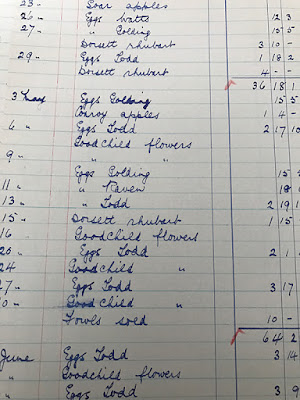 23 " Coar apples
26 " Eggs Watts 12 3
27 " " Golding 15 5
Dorsett rhubarb 3 10 -
29 " Eggs Todd 1 18 2
Dorsett rhubarb 4 - -
36 18
3 May Eggs Golding 15 5
Conroy apples 1 4 -
6 " Eggs Todd 2 17 10
Goodchild flowers
9 " " "
Eggs Golding 15
11 " " Raven 18
13 " " Todd 2 19 1
15 " Dorsett rhubarb 1 15
16 Goodchild flowers
20 " Eggs Todd 2 1
24 Goodchild "
27 " Eggs Todd 3 17
30 " Goodchild "
Fowls sold 10 -
64 2
June Eggs Todd 3 14
" Goodchild flowers
" Eggs Todd 3 9